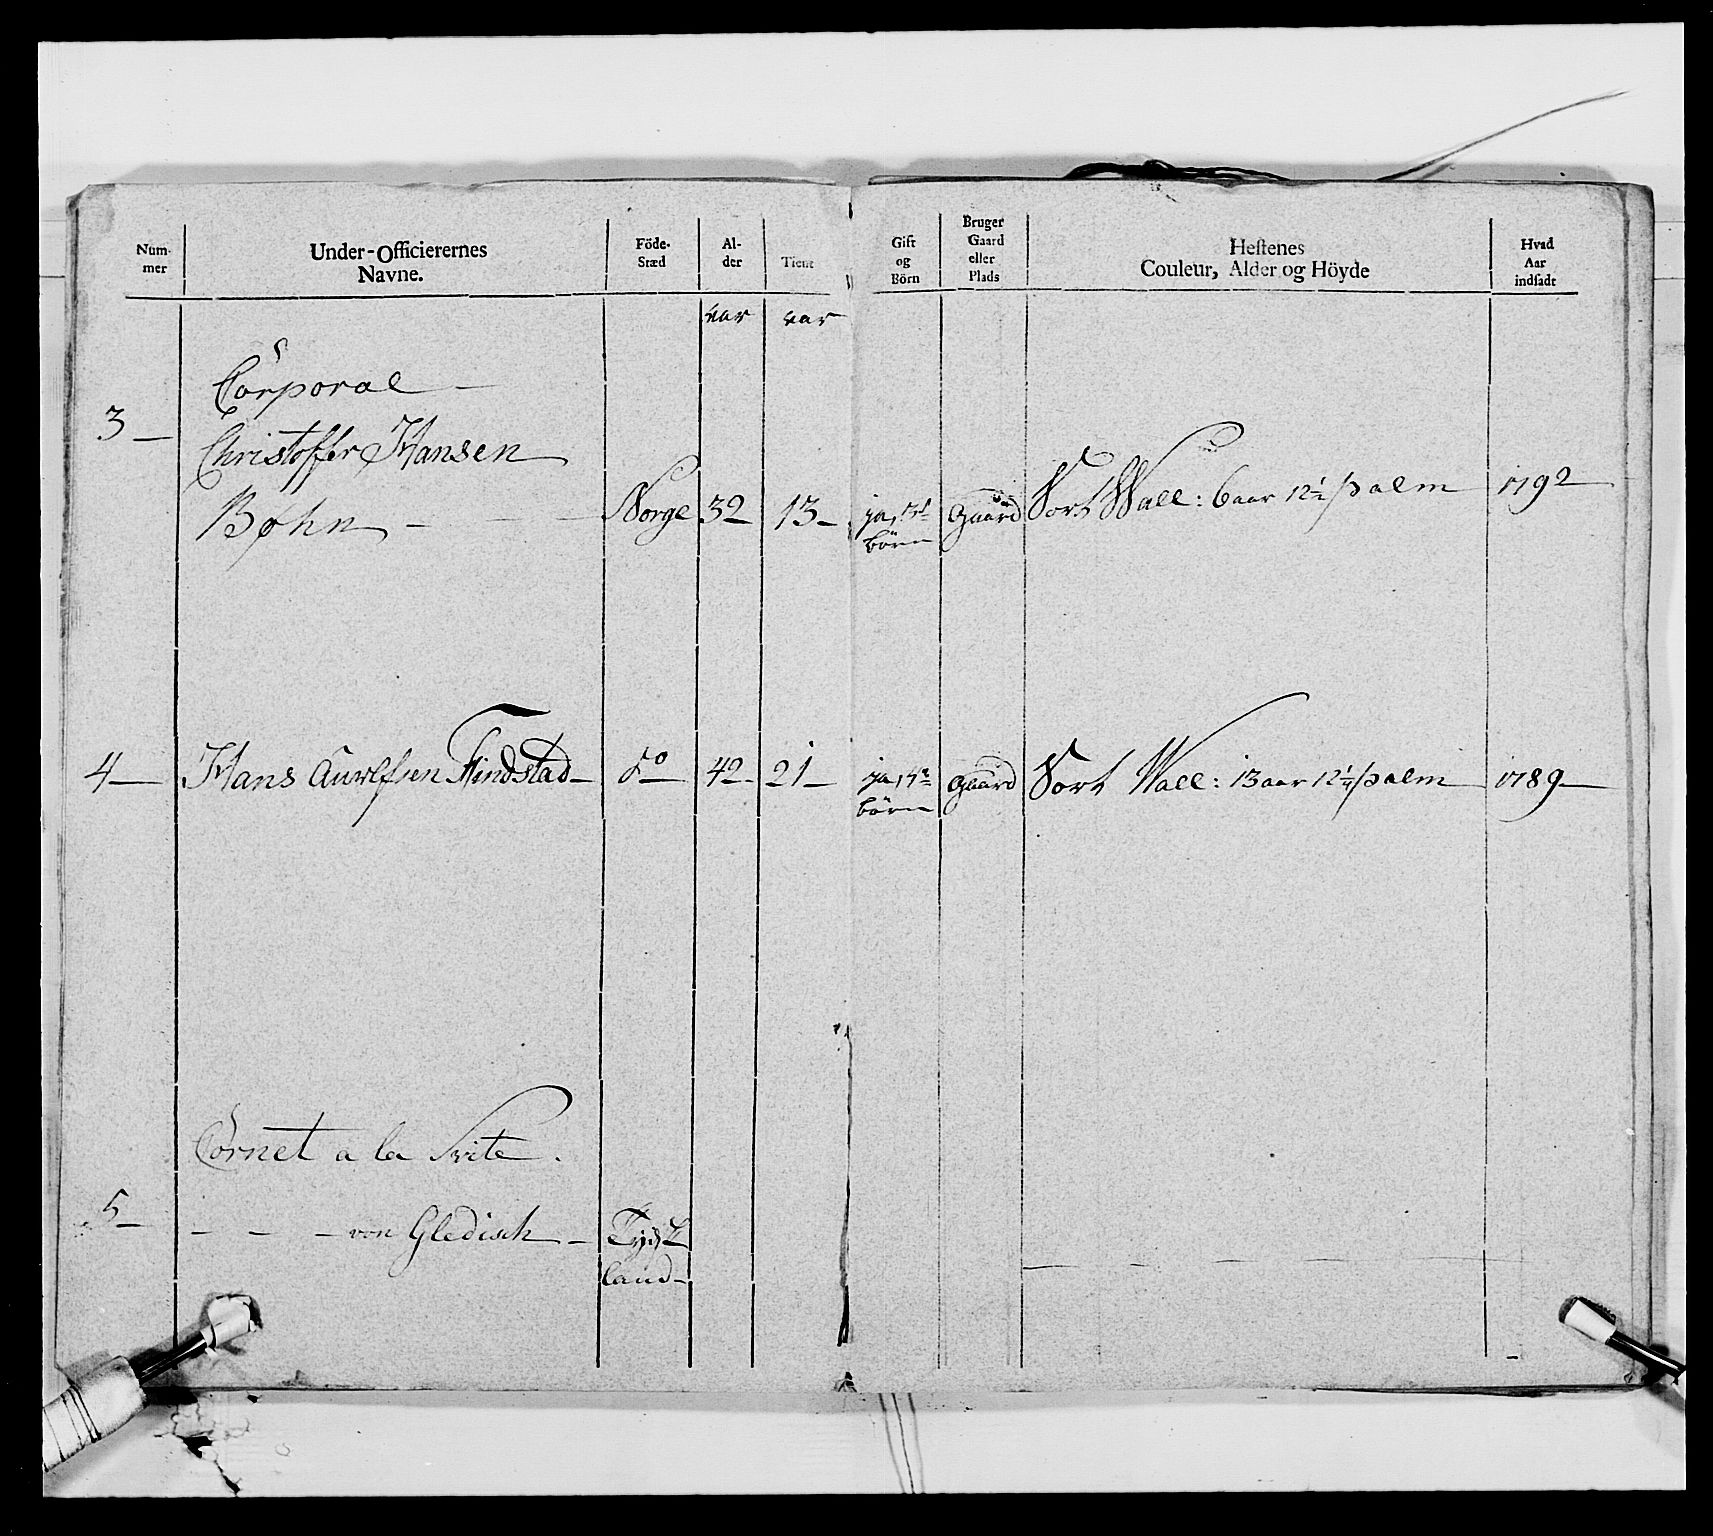 Num-
mer
Under-Officierernes
Navne.
Föde-
Stæd
Al-
der
Tient
Gift
og
Börn
Bruger
Gaard
eller
Plads
Hestenes
Couleur, Alder og Höyde
Hvad
Aar
indsadt
aar aar
Corporal —
3 —
Christoffer Hansen
Bøhn — Norge 32 13 — ja, börn Gaard Sort Wall: 6 aar 12½ palm 1792
4 — Hans Findstad — do 42 21 — ja, 4re börn Gaard Sort Wall: 13 aar 12¼ palm 1789 —
Cornet a la Svite.
5 — — — — von Gledisch — Tydsk
land —